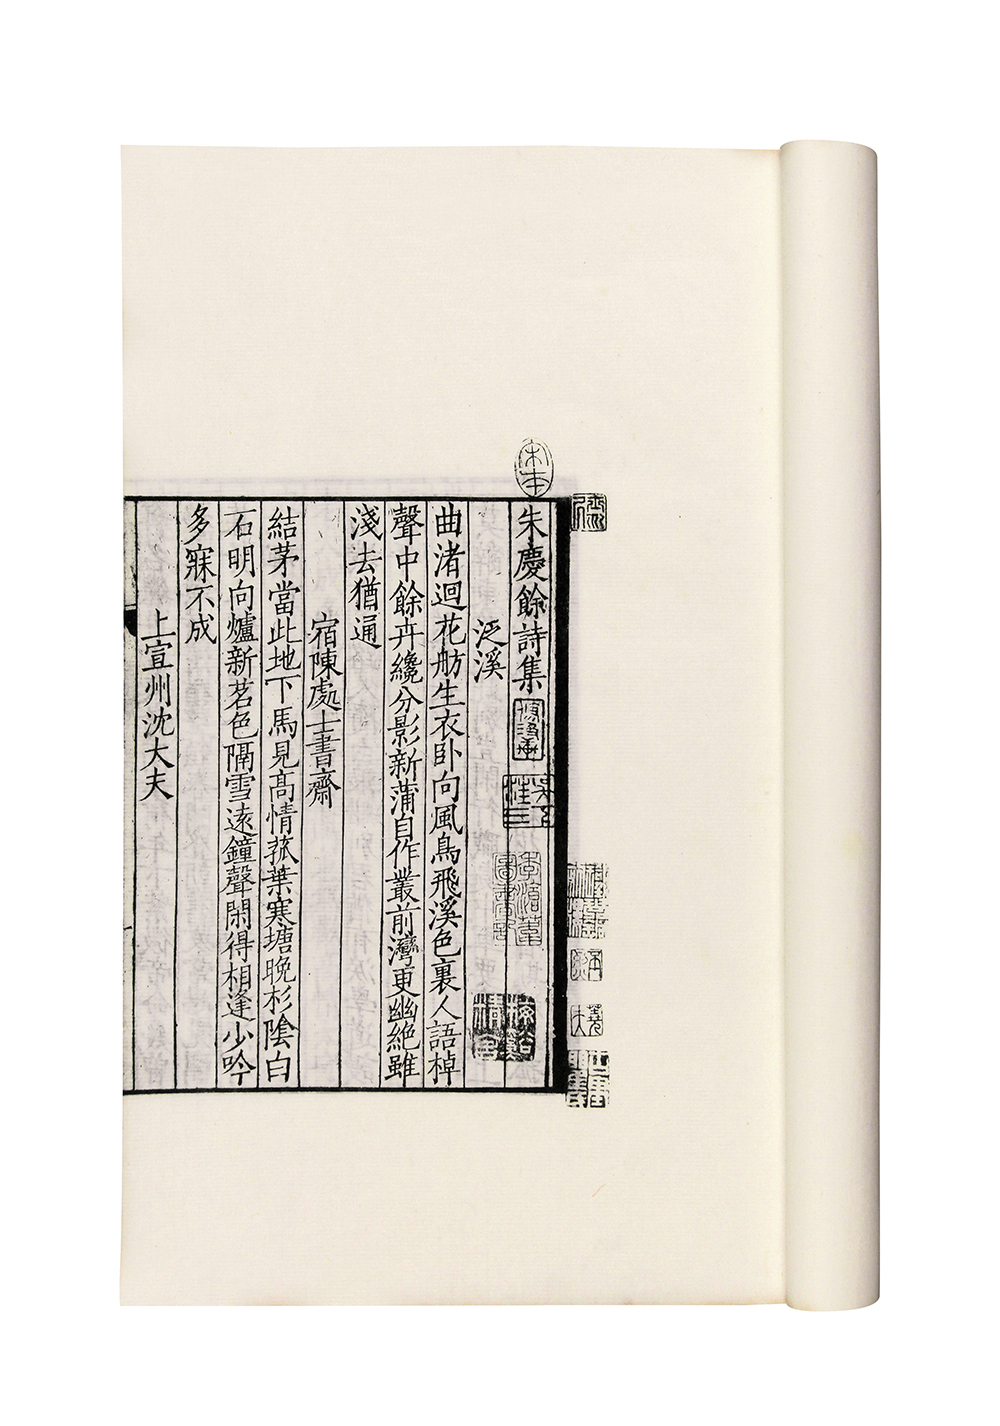 宋本
朱慶餘詩集
泛溪
曲渚迴花舫生衣卧向風鳥飛溪色裏人語棹
聲中餘卉纔分影新蒲自作叢前灣更幽絶雖
淺去猶通
宿陳處士書齋
結茅當此地下馬見高情菰葉寒塘晚杉陰白
石明向爐新茗色隔雪遠鐘聲閑得相逢少吟
多寐不成
上宣州沈大夫